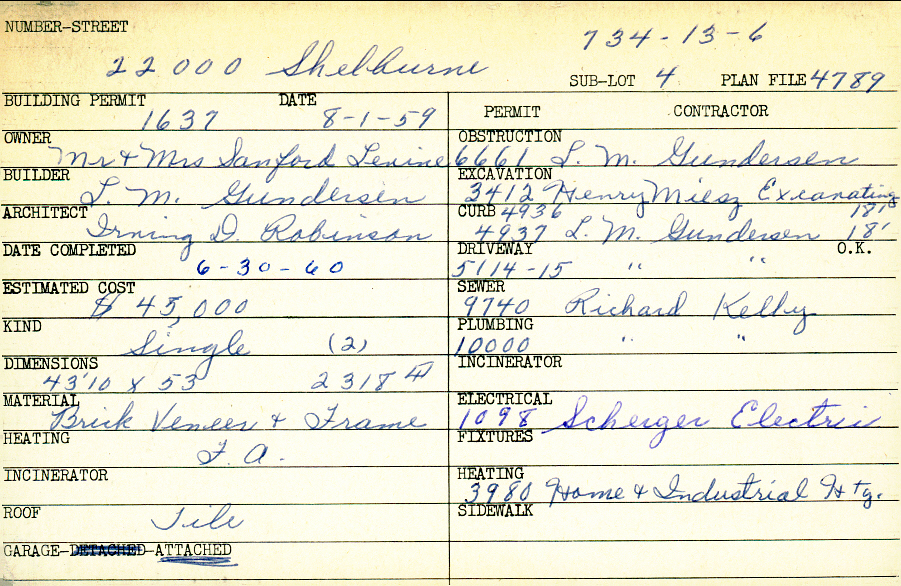 NUMBER-STREET
734-13-6
22000 Shelburne
SUB-LOT 4 PLAN FILE 4789
BUILDING PERMIT DATE
1637 8-1-59
OWNER
Mr & Mrs Sanford Levine
BUILDER
L. M. Gundersen
ARCHITECT
Irving D. Robinson
DATE COMPLETED
6-30-60
ESTIMATED COST
$ 45,000
KIND
Single (2)
DIMENSIONS
43'10 x 53 2318
MATERIAL
Brick Veneer & Frame
HEATING
F. A.
INCINERATOR
ROOF
Tile
GARAGE-DETACHED-ATTACHED
PERMIT CONTRACTOR
OBSTRUCTION
6661 L. M. Gundersen
EXCAVATION
3412 Henry Miesz Excavating
CURB 4936 18'
4937 L. M. Gundersen 18'
DRIVEWAY O.K.
5114-15 " "
SEWER
9740 Richard Kelby
PLUMBING
10000 " "
INCINERATOR
ELECTRICAL
1098 Scherger Electric
FIXTURES
HEATING
3980 Home & Industrial Htg.
SIDEWALK